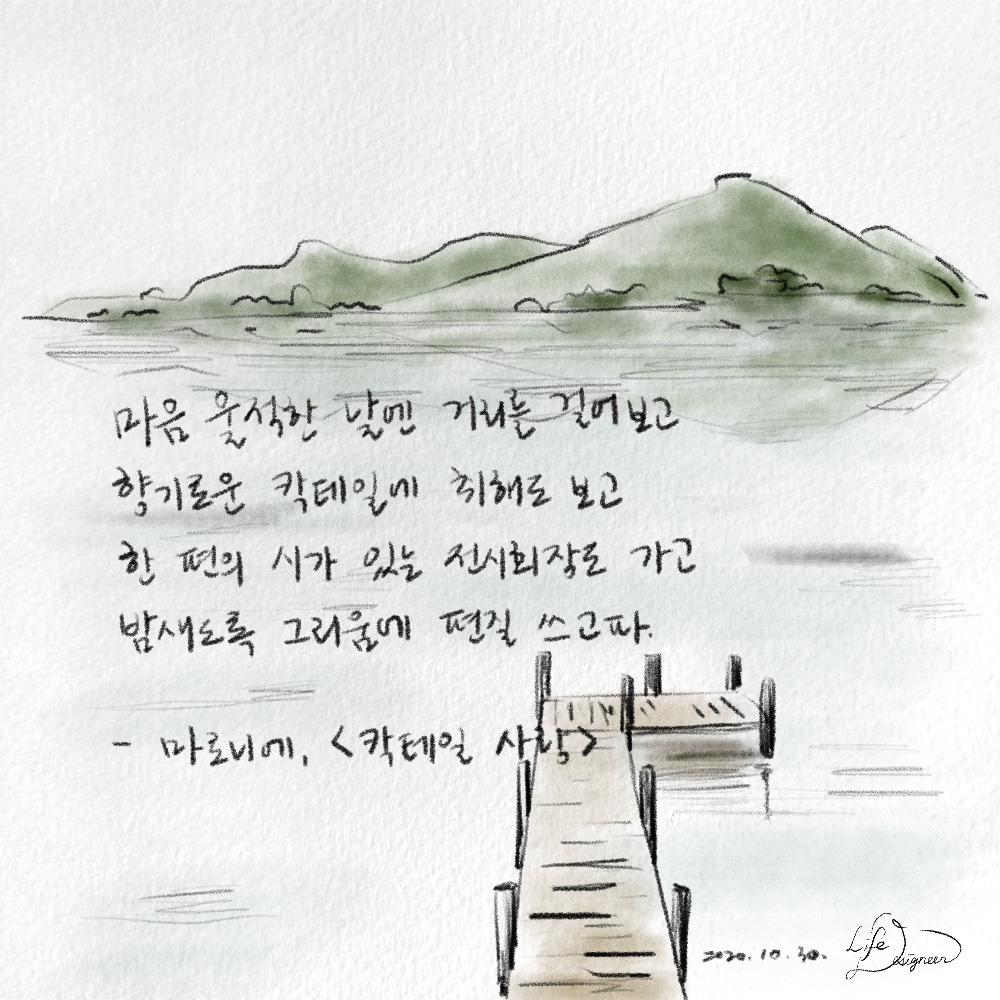 마음 울적한 날엔 거리를 걸어보고
향기로운 칵테일에 취해도 보고
한 편의 시가 있는 전시회장도 가고
밤새도록 그리움에 편질 쓰고파.
- 마로니에, <칵테일 사랑>
2020.10.30.
Life Designeer